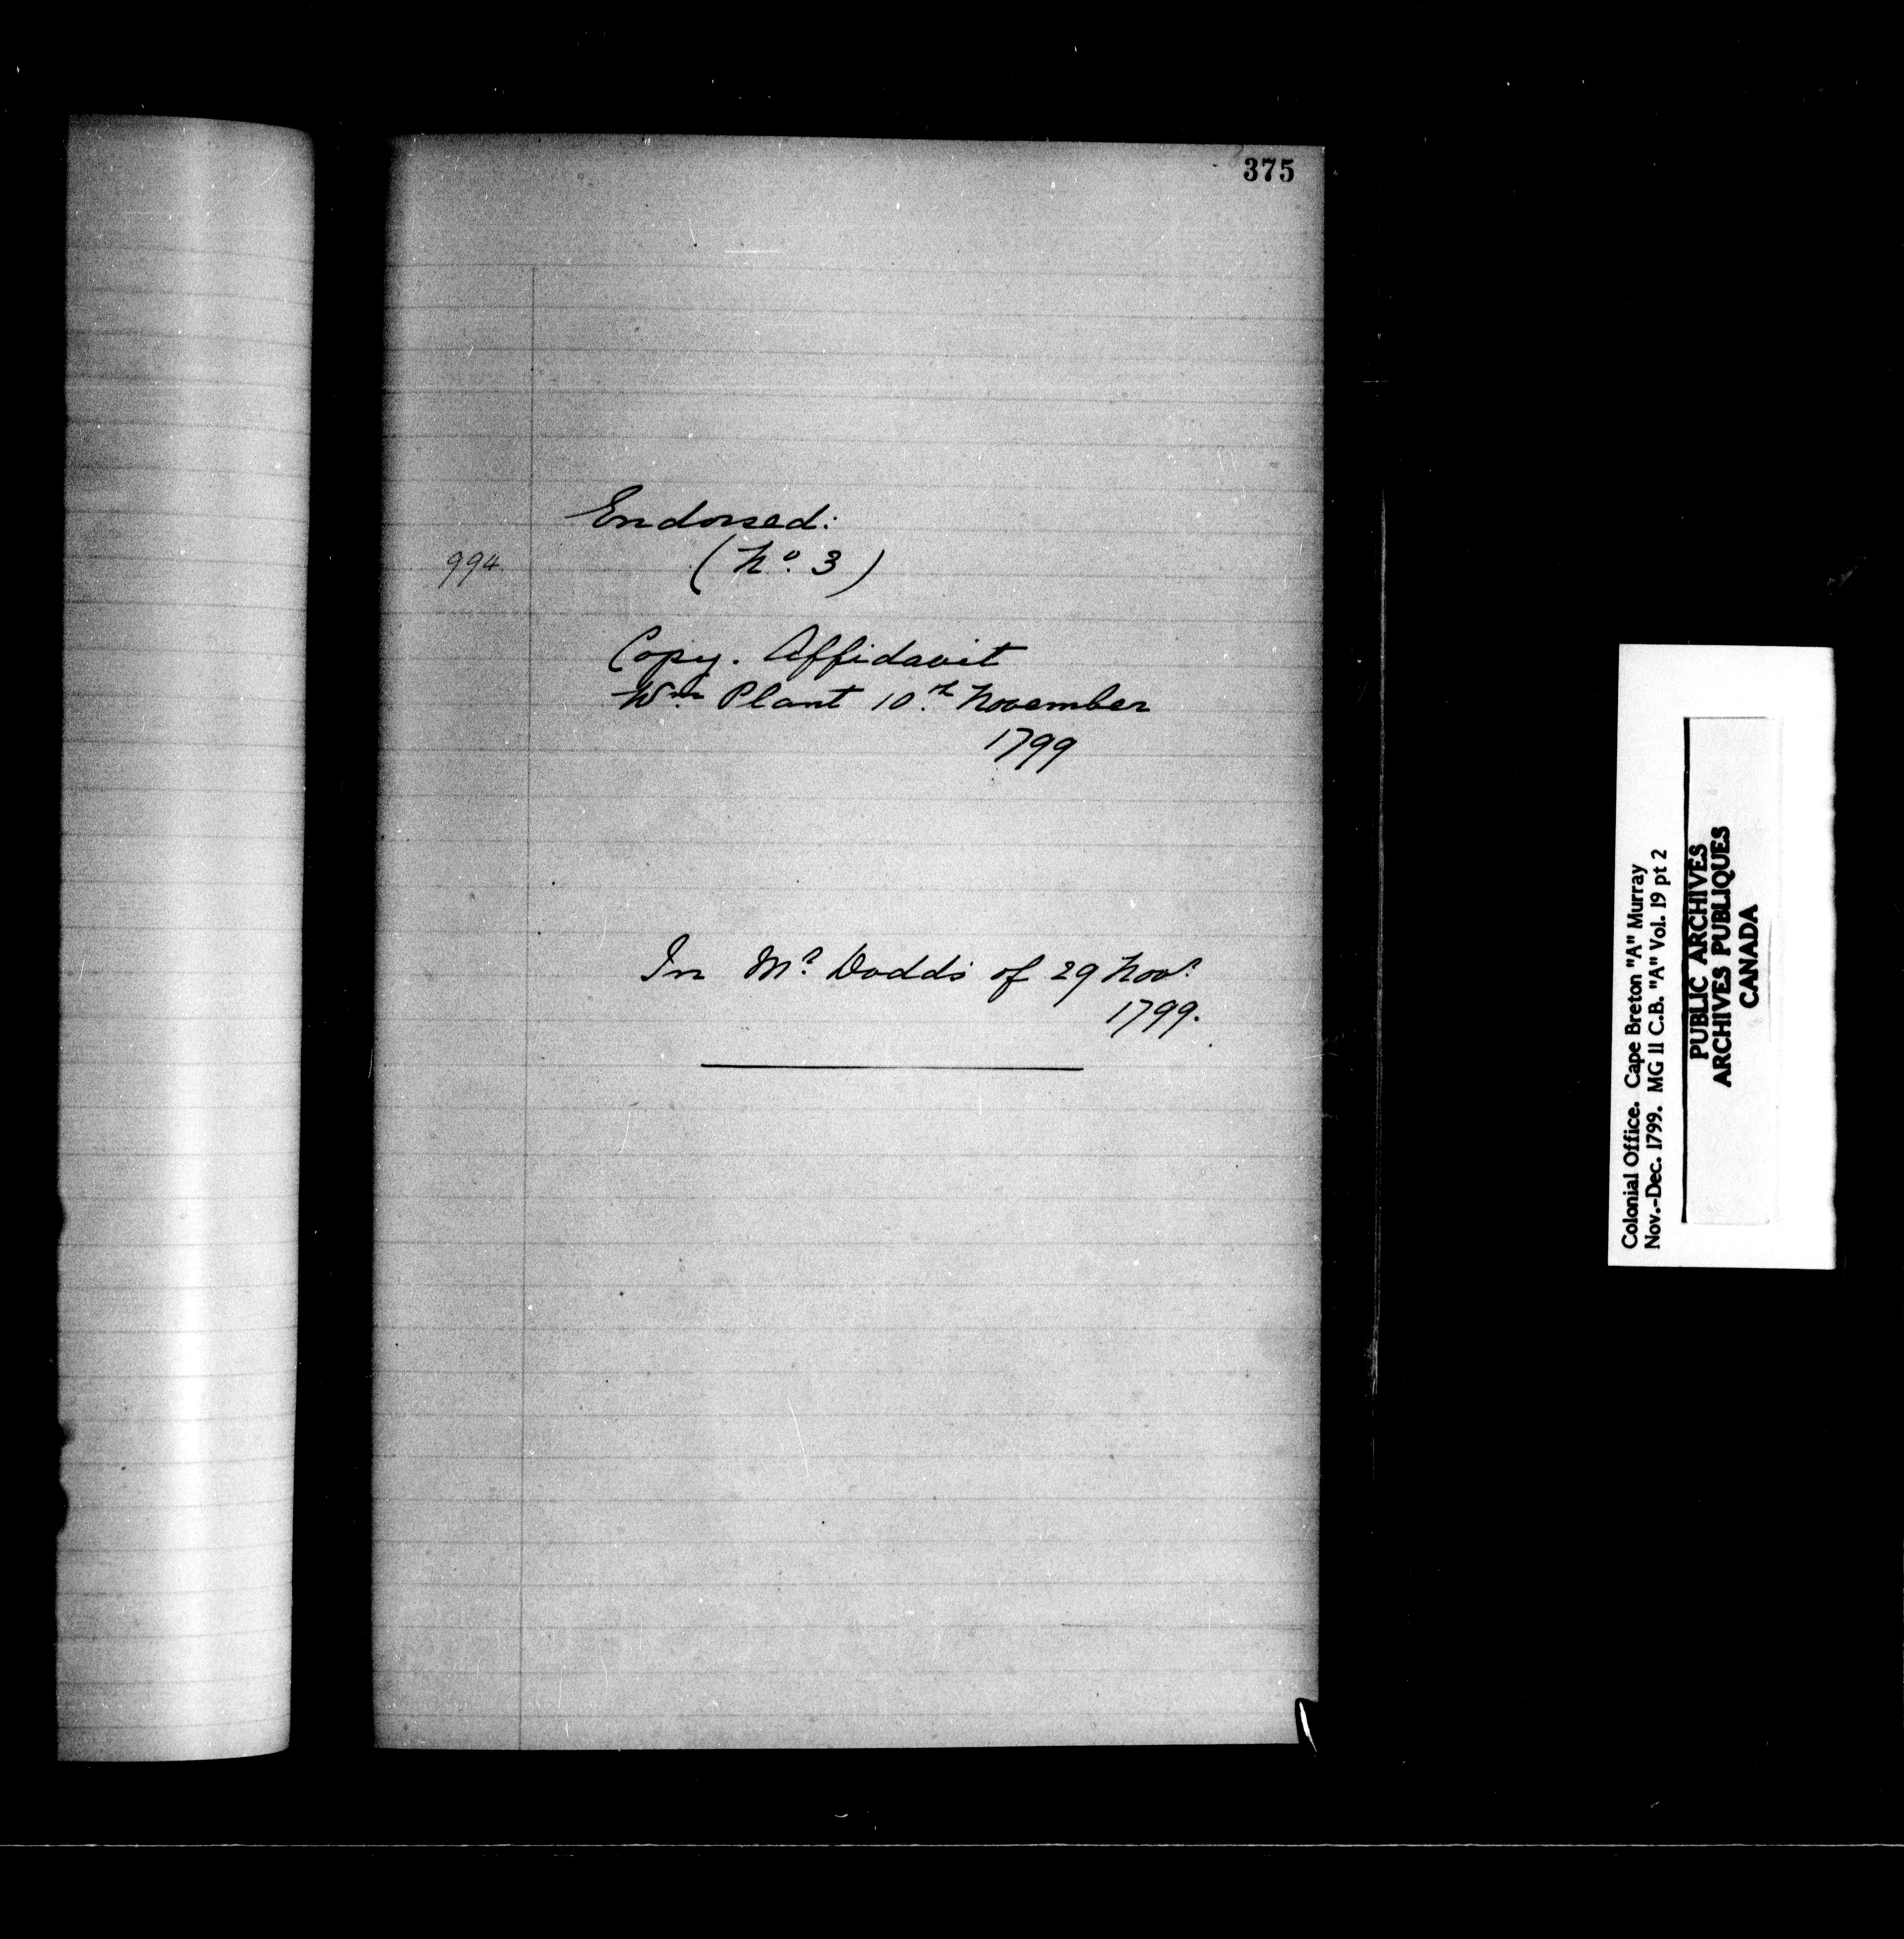 375
Endorsed:
994
(No. 3)
Copy. Affidavit
Wm Plant 10th November
1799
In Mr Dodds of 29 Novr
1799.
Colonial Office. Cape Breton "A" Murray
Nov.-Dec. 1799. MG 11 C.B. "A" Vol. 19 pt 2
PUBLIC ARCHIVES
ARCHIVES PUBLIQUES
CANADA